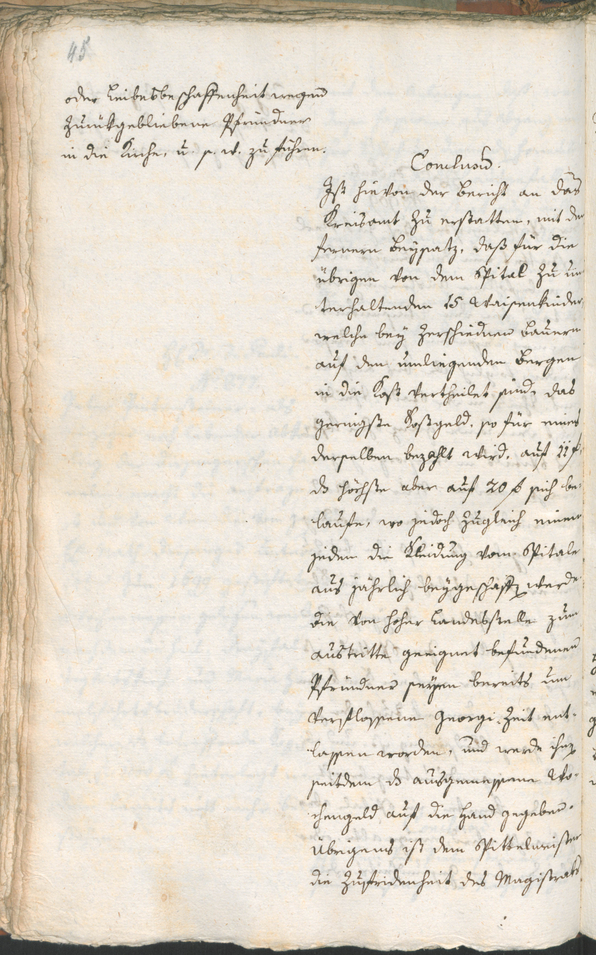 45
oder Leibesbeschaffenheit wegen
zurükgebliebene Pfründner
in die Kirche, u. s. w. zu führen.
Conclusum.
Ist hievon der Bericht an das
Kreisamt zu erstatten, mit dem
fernern Beysatz, daß für die
übrigen von dem Spital zu un
terhaltenden 15 Waisenkinder
welche bey zerschiednen Bauern
auf den umliegenden Bergen
in die Kost vertheilet sind, das
geringste Kostgeld, so für eines
derselben bezahlt wird, auf 11 f
das höchste aber auf 20 f sich be
laufe, wo jedoch zugleich einem
jedem die Kleidung vom Spitale
aus jährlich beygeschafft werde
die von hoher Landesstelle zum
Austritte geeignet befundenen
Pfründner seyen bereits um
verflossene Georgi Zeit ent-
lassen worden, und werde ihnen
seitdem das ausgemessene Wo-
chengeld auf die Hand gegeben.
Übrigens ist dem Spittelmeister
die Zufridenheit des Magistrats